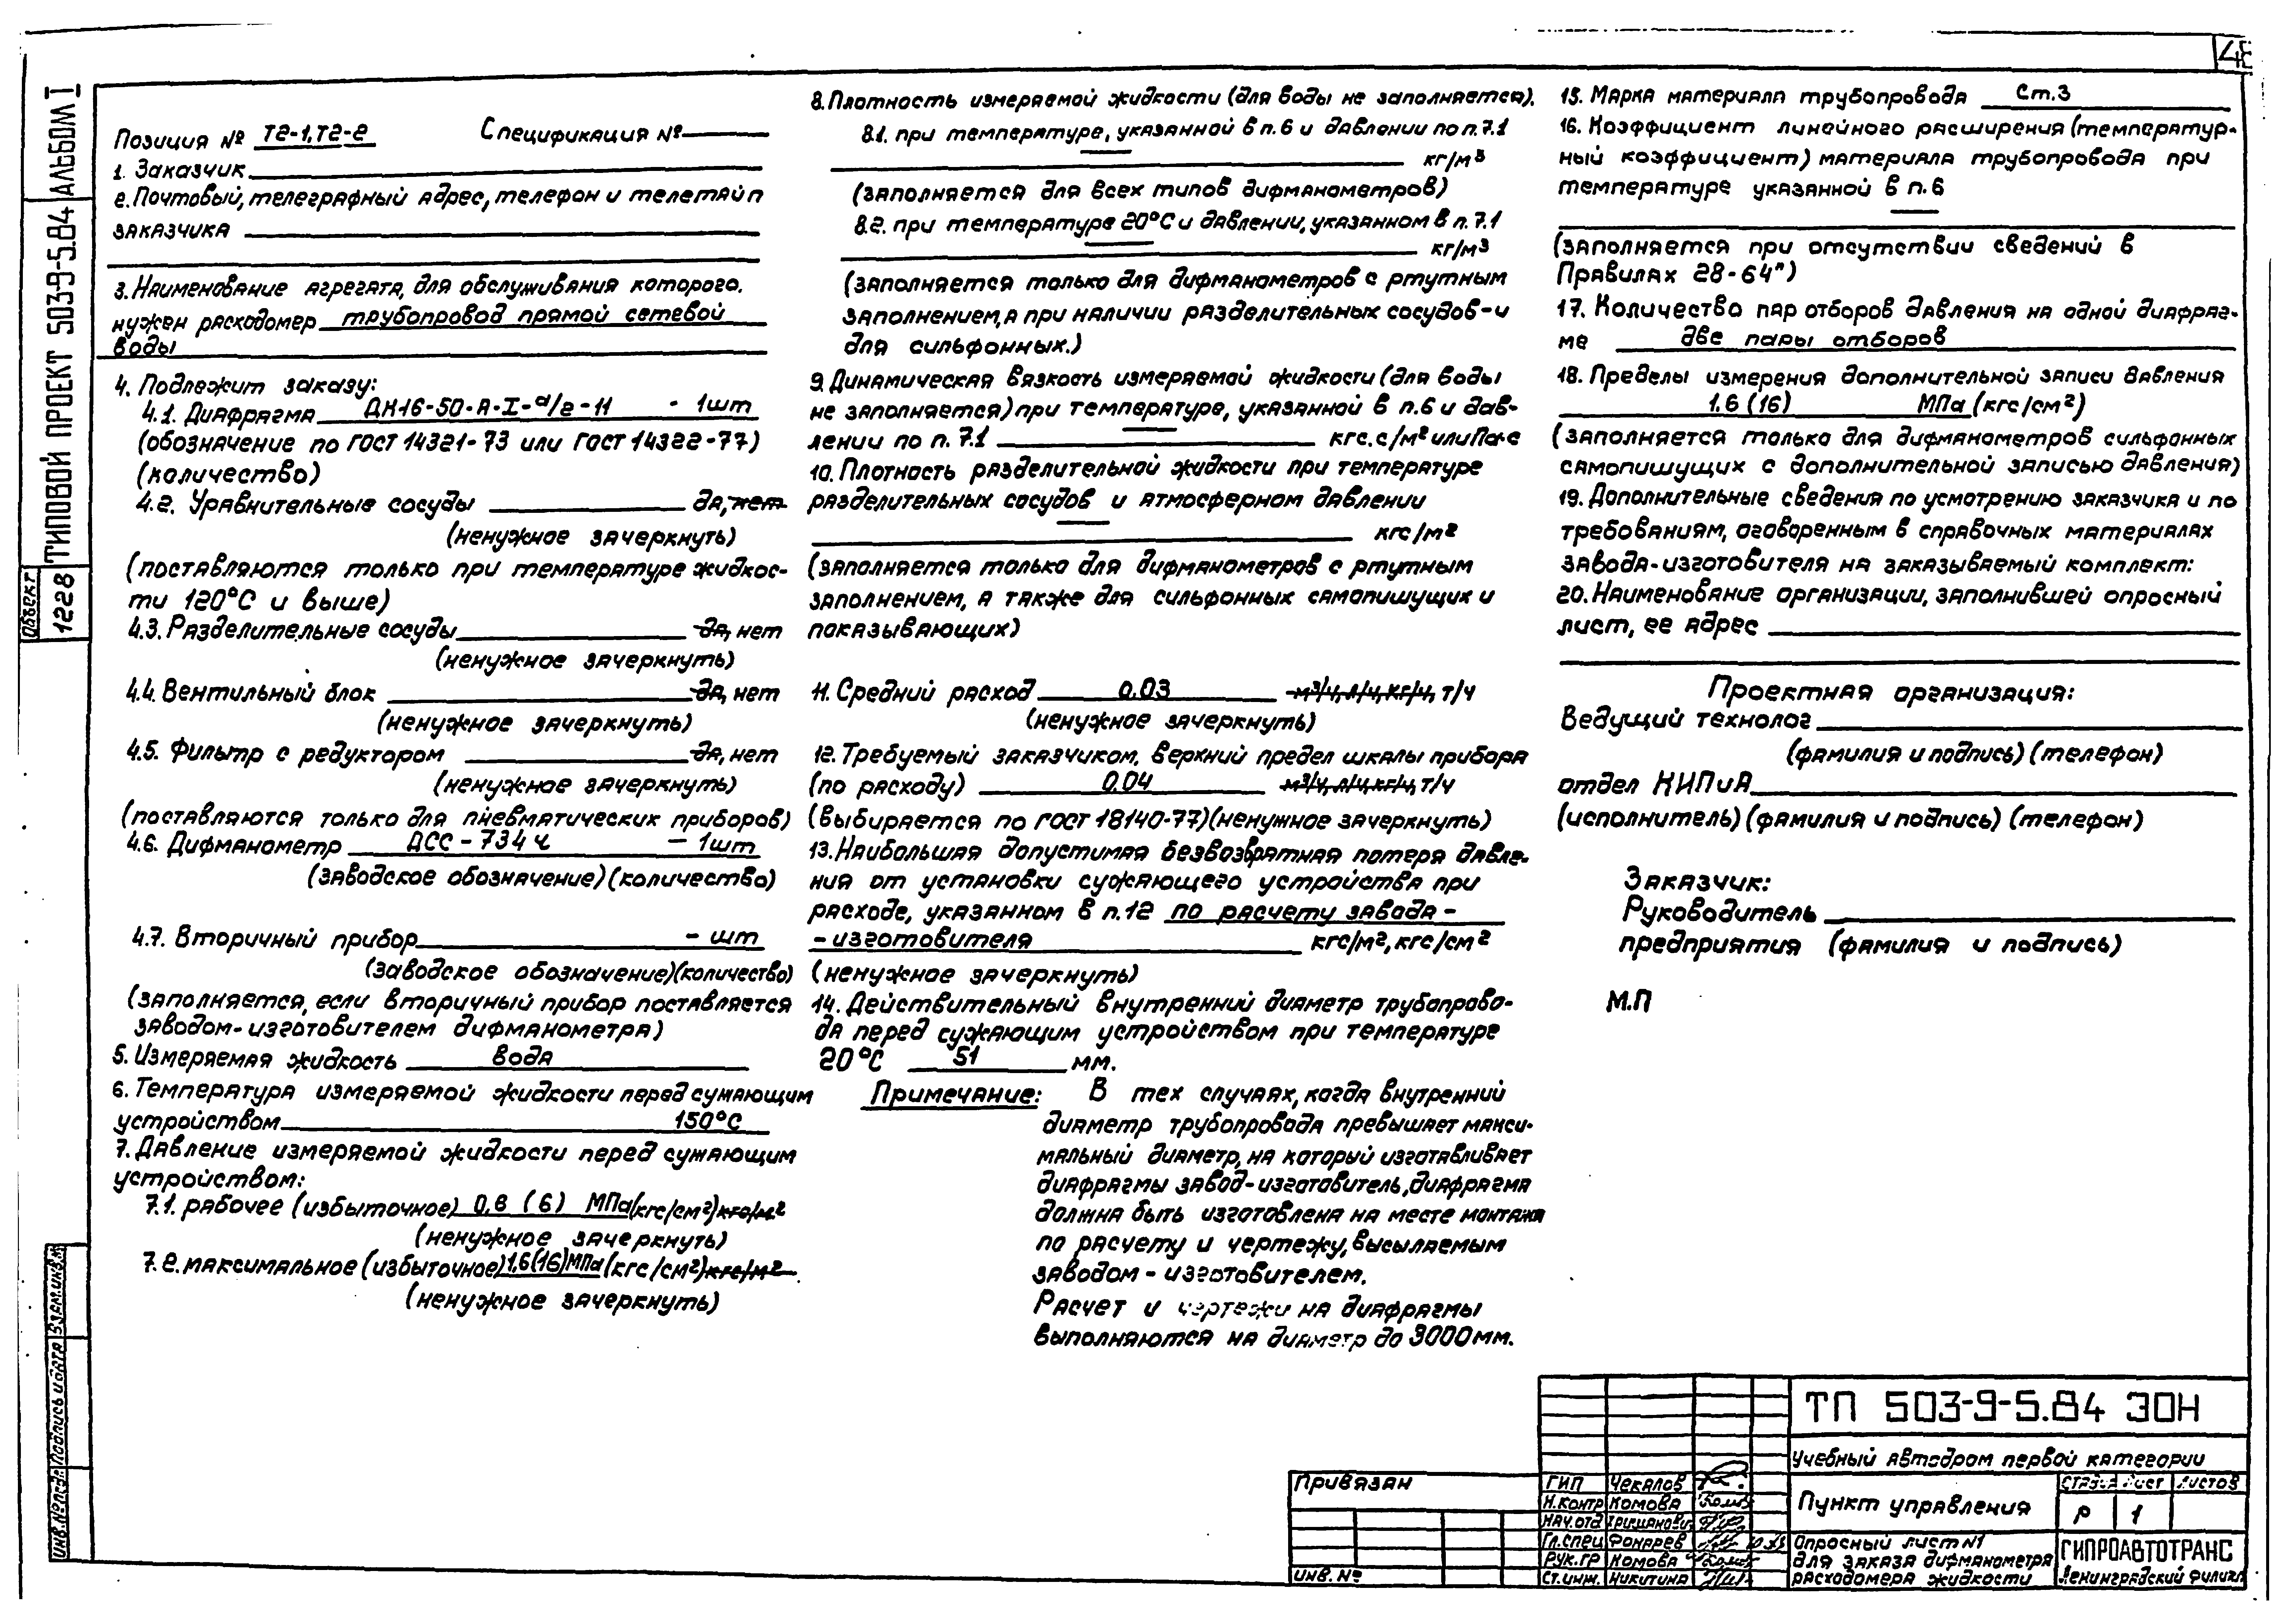 48
АЛЬБОМ I
ТИПОВОЙ ПРОЕКТ 503-9-5.84
ОБЪЕКТ
1228
Позиция № Т2-1,Т2-2 Спецификация №
1. Заказчик
2. Почтовый, телеграфный адрес, телефон и телетайп
заказчика
3. Наименование агрегата, для обслуживания которого.
нужен расходомер трубопровод прямой сетевой
воды
4. Подлежит заказу:
4.1. Диафрагма ДК16-50-А-I-а/г-11 - 1шт
(обозначение по ГОСТ 14321-73 или ГОСТ 14322-77)
(количество)
4.2. Уравнительные сосуды да, нет
(ненужное зачеркнуть)
(поставляются только при температуре жидкос-
ти 120°С и выше)
4.3. Разделительные сосуды да, нет
(ненужное зачеркнуть)
4.4. Вентильный блок да, нет
(ненужное зачеркнуть)
4.5. Фильтр с редуктором да, нет
(ненужное зачеркнуть)
(поставляются только для пневматических приборов)
4.6. Дифманометр ДСС-734Ч - 1шт
(заводское обозначение)(количество)
4.7. Вторичный прибор - шт
(заводское обозначение)(количество)
(заполняется, если вторичный прибор поставляется
заводом-изготовителем дифманометра)
5. Измеряемая жидкость вода
6. Температура измеряемой жидкости перед сужающим
устройством 150°С
7. Давление измеряемой жидкости перед сужающим
устройством:
7.1. рабочее (избыточное) 0,6 (6) МПа(кгс/см²)кгс/м²
(ненужное зачеркнуть)
7.2. максимальное (избыточное) 1,6(16)МПа(кгс/см²)кгс/м²
(ненужное зачеркнуть)
8. Плотность измеряемой жидкости (для воды не заполняется).
8.1. при температуре, указанной в п.6 и давлении по п.7.1
кг/м³
(заполняется для всех типов дифманометров)
8.2. при температуре 20°С и давлении, указанном в п.7.1
кг/м³
(заполняется только для дифманометров с ртутным
заполнением, а при наличии разделительных сосудов-и
для сильфонных.)
9. Динамическая вязкость измеряемой жидкости (для воды
не заполняется) при температуре, указанной в п.6 и дав-
лении по п.7.1 кгс.с/м² или Па·с
10. Плотность разделительной жидкости при температуре
разделительных сосудов и атмосферном давлении
кгс/м²
(заполняется только для дифманометров с ртутным
заполнением, а также для сильфонных самопишущих и
показывающих)
11. Средний расход 0,03 м³/ч, л/ч, кг/ч, т/ч
(ненужное зачеркнуть)
12. Требуемый заказчиком, верхний предел шкалы прибора
(по расходу) 0,04 м³/ч, л/ч, кг/ч, т/ч
(выбирается по ГОСТ 18140-77)(ненужное зачеркнуть)
13. Наибольшая допустимая безвозвратная потеря давле-
ния от установки сужающего устройства при
расходе, указанном в п.12 по расчету завода-
-изготовителя кгс/м², кгс/см²
(ненужное зачеркнуть)
14. Действительный внутренний диаметр трубопрово-
да перед сужающим устройством при температуре
20°С 51 мм.
Примечание: В тех случаях, когда внутренний
диаметр трубопровода превышает макси-
мальный диаметр, на который изготавливает
диафрагмы завод-изготовитель, диафрагма
должна быть изготовлена на месте монтажа
по расчету и чертежу, высылаемым
заводом-изготовителем.
Расчет и чертежи на диафрагмы
выполняются на диаметр до 3000мм.
15. Марка материала трубопровода Ст.3
16. Коэффициент линейного расширения (температур-
ный коэффициент) материала трубопровода при
температуре указанной в п.6
(заполняется при отсутствии сведений в
Правилах 28-64")
17. Количество пар отборов давления на одной диафраг-
ме две пары отборов
18. Пределы измерения дополнительной записи давления
1.6 (16) МПа (кгс/см²)
(заполняется только для дифманометров сильфонных
самопишущих с дополнительной записью давления)
19. Дополнительные сведения по усмотрению заказчика и по
требованиям, оговоренным в справочных материалах
завода-изготовителя на заказываемый комплект:
20. Наименование организации, заполнившей опросный
лист, ее адрес
Проектная организация:
Ведущий технолог
(фамилия и подпись) (телефон)
отдел КИПиА
(исполнитель) (фамилия и подпись) (телефон)
Заказчик:
Руководитель
предприятия (фамилия и подпись)
М.П
Привязан
ИНВ. №
ГИП Чекалов
Н.контр Комова
Нач.отд
Гл.спец Фонарев
Рук.гр Комова
Ст.инж. Никитина
ТП 503-9-5.84 ЭОН
Учебный автодром первой категории
Пункт управления
Стадия Лист Листов
Р 1
Опросный лист №1
для заказа дифманометра
расходомера жидкости
ГИПРОАВТОТРАНС
Ленинградский филиал
Взам.инв.№
Подпись и дата
Инв.№ подл.